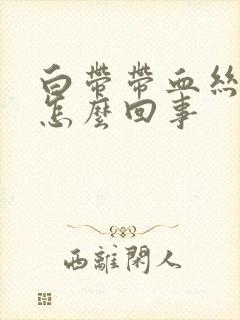 白帶帶血絲
怎麼回事
西離閑人